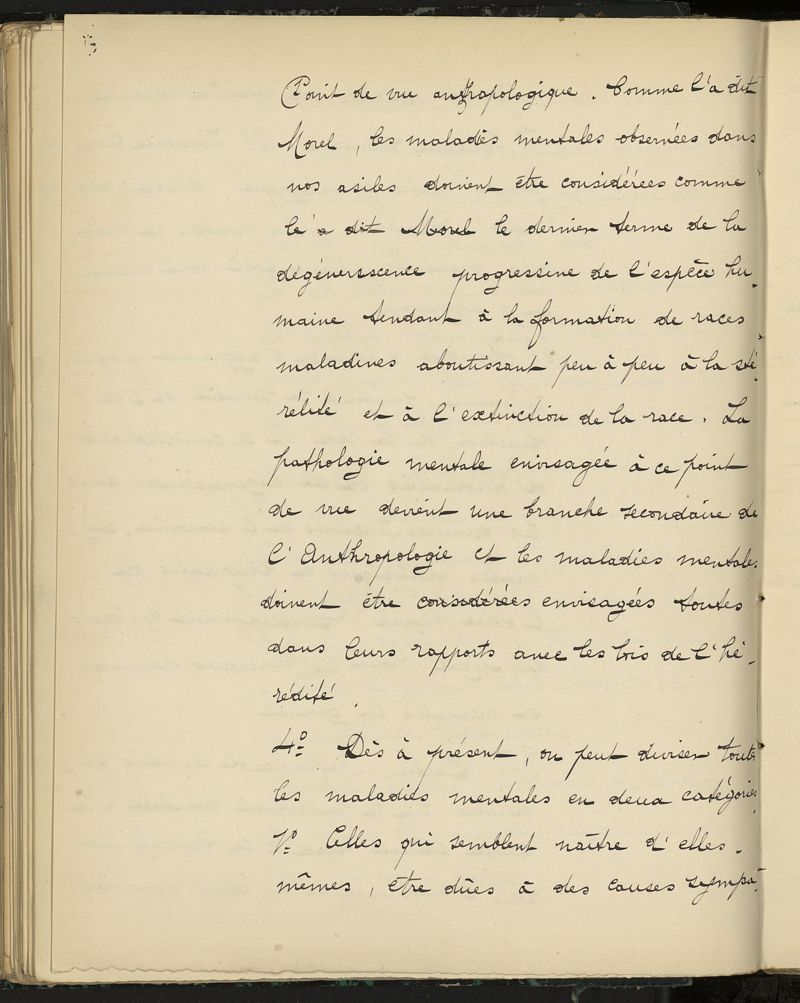 Point de vue anthrapologique. Comme l'a dit
Morel, les maladies mentales observées dans
nos asiles doivent être considérées comme
le'a dit Morel le dernier terme de la
dégénerescence progressive de l'espèce hu-
maine tendant à la formation de races
maladives aboutissant peu à peu à la sté-
rélité et à l'extinction de la race. La
pathologie mentale envisagée à ce point
de vue devient une branche secondaire de
l'Anthropologie et les maladies mentales
doivent être considérées envisagées toutes
dans leurs rapports avec les lois de l'hé-
rédité.
4º= Dès à présent, on peut diviser toutes
les maladies mentales en deux catégories
1º= Celles qui semblent naître d'elles-
mêmes, être dûes à des causes sympa-